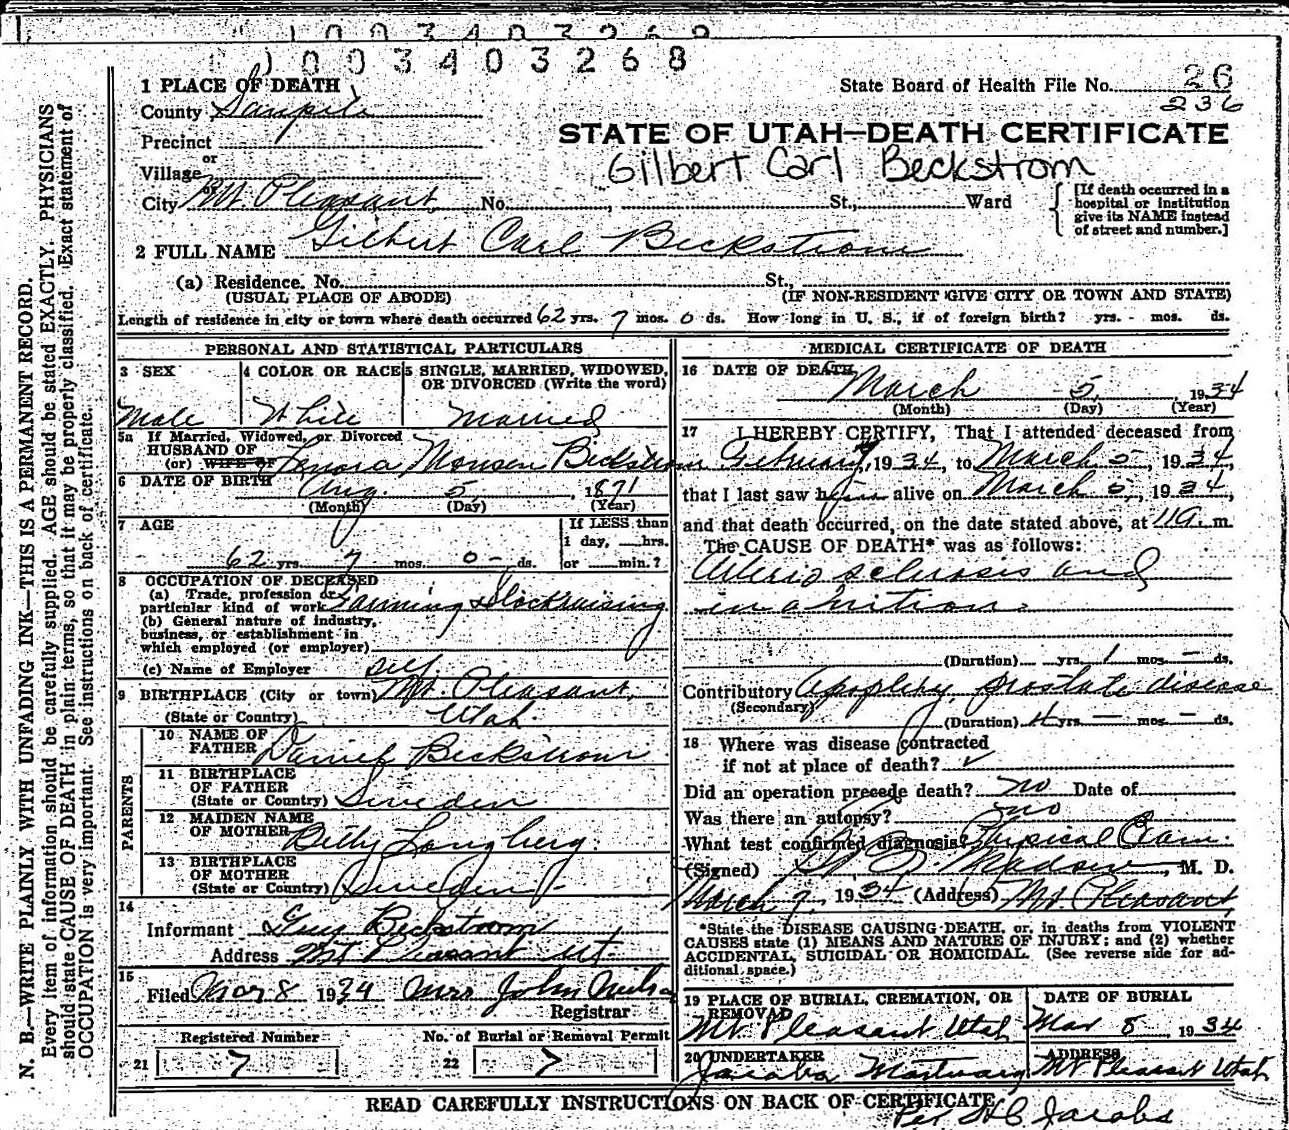 1003403268
1003403268
1 PLACE OF DEATH
State Board of Health File No. 26
236
County Sanpete
STATE OF UTAH—DEATH CERTIFICATE
Precinct
or
Gilbert Carl Beckstrom
Village
or
City Mt. Pleasant, No. , St., Ward
[If death occurred in a
hospital or institution
give its NAME instead
of street and number.]
2 FULL NAME Gilbert Carl Beckstrom
(a) Residence. No. St.,
(USUAL PLACE OF ABODE) (IF NON-RESIDENT GIVE CITY OR TOWN AND STATE)
Length of residence in city or town where death occurred 62 yrs. 7 mos. 0 ds. How long in U. S., if of foreign birth? yrs. - mos. ds.
PERSONAL AND STATISTICAL PARTICULARS
3 SEX
4 COLOR OR RACE
5 SINGLE, MARRIED, WIDOWED,
OR DIVORCED (Write the word)
Male White Married
5a If Married, Widowed, or Divorced
HUSBAND OF
(or) WIFE OF Lenora Monsen Beckstrom
6 DATE OF BIRTH Aug. 5, 1871
(Month) (Day) (Year)
7 AGE
If LESS than
1 day, hrs.
62 yrs. 7 mos. 0 ds. or min.?
8 OCCUPATION OF DECEASED
(a) Trade, profession or
particular kind of work Farming & Stockraising
(b) General nature of industry,
business, or establishment in
which employed (or employer)
(c) Name of Employer self
9 BIRTHPLACE (City or town) Mt. Pleasant,
(State or Country) Utah.
PARENTS
10 NAME OF
FATHER Daniel Beckstrom
11 BIRTHPLACE
OF FATHER
(State or Country) Sweden
12 MAIDEN NAME
OF MOTHER Betty Longberg.
13 BIRTHPLACE
OF MOTHER
(State or Country) Sweden
14
Informant Guy Beckstrom
Address Mt Pleasant Ut.
15
Filed Mar 8 1934 Mrs John
Registrar
Registered Number No. of Burial or Removal Permit
21 7 22 7
MEDICAL CERTIFICATE OF DEATH
16 DATE OF DEATH
March 5, 1934
(Month) (Day) (Year)
17 I HEREBY CERTIFY, That I attended deceased from
February, 1934, to March 5, 1934,
that I last saw him alive on March 5, 1934,
and that death occurred, on the date stated above, at 11 a. m.
The CAUSE OF DEATH* was as follows:
Arterio sclerosis and
inanition.
(Duration) yrs. 1 mos. - ds.
Contributory Apoplexy, prostate disease
(Secondary)
(Duration) yrs. - mos. - ds.
18 Where was disease contracted
if not at place of death?
Did an operation precede death? no Date of
Was there an autopsy? no
What test confirmed diagnosis? Physical Exam.
(Signed) Madsen, M. D.
March 7, 1934 (Address) Mt. Pleasant,
*State the DISEASE CAUSING DEATH, or, in deaths from VIOLENT
CAUSES state (1) MEANS AND NATURE OF INJURY; and (2) whether
ACCIDENTAL, SUICIDAL OR HOMICIDAL. (See reverse side for ad-
ditional space.)
19 PLACE OF BURIAL, CREMATION, OR
REMOVAL
Mt Pleasant Utah
DATE OF BURIAL
Mar 8, 1934
20 UNDERTAKER
Jacobs Mortuary
ADDRESS
Mt Pleasant Utah
READ CAREFULLY INSTRUCTIONS ON BACK OF CERTIFICATE
Per H C Jacobs
N. B.—WRITE PLAINLY WITH UNFADING INK—THIS IS A PERMANENT RECORD.
Every item of information should be carefully supplied. AGE should be stated EXACTLY. PHYSICIANS
should state CAUSE OF DEATH in plain terms, so that it may be properly classified. Exact statement of
OCCUPATION is very important. See instructions on back of certificate.